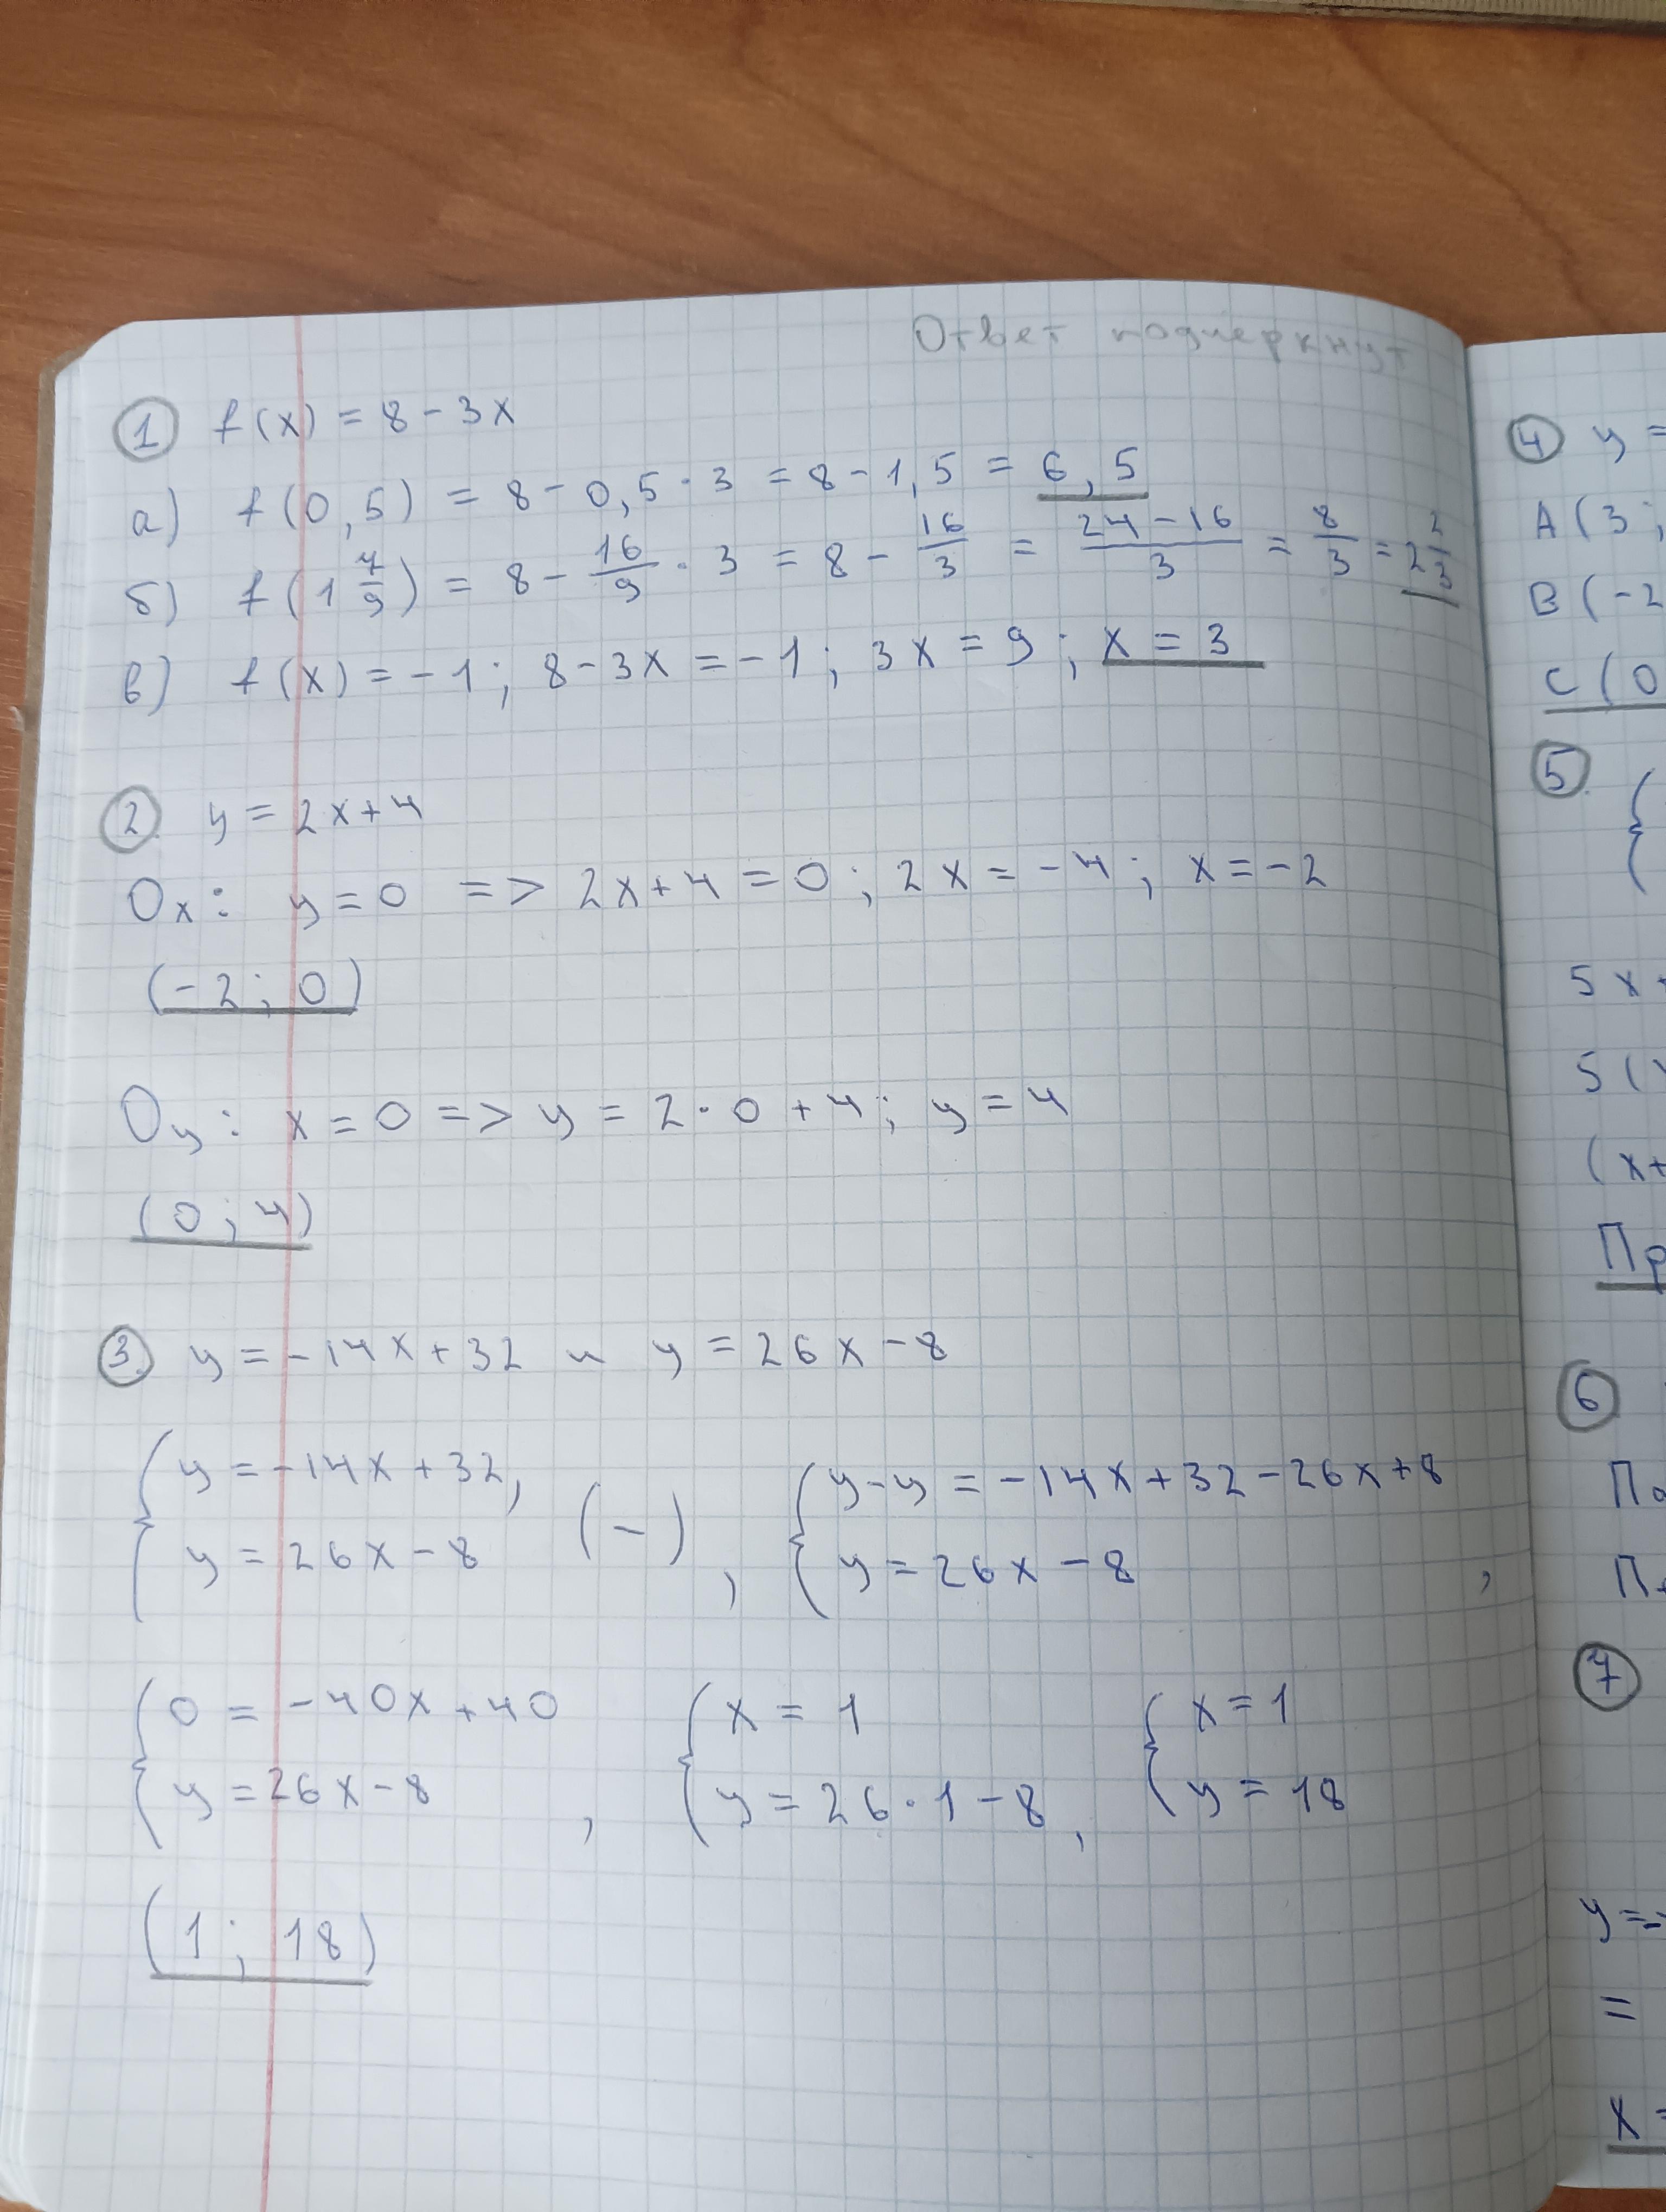 Ответ подчеркнут
1 f(x) = 8 - 3x
а) f(0,5) = 8 - 0,5 · 3 = 8 - 1,5 = 6,5
б) f(1 7/9) = 8 - 16/9 · 3 = 8 - 16/3 = (24 - 16)/3 = 8/3 = 2 2/3
в) f(x) = -1; 8 - 3x = -1; 3x = 9; x = 3
2 y = 2x + 4
Ox: y = 0 => 2x + 4 = 0; 2x = -4; x = -2
(-2; 0)
Oy: x = 0 => y = 2 · 0 + 4; y = 4
(0; 4)
3 y = -14x + 32 и y = 26x - 8
{ y = -14x + 32, (-), { y - y = -14x + 32 - 26x + 8
y = 26x - 8 y = 26x - 8 ,
{ 0 = -40x + 40 { x = 1 { x = 1
y = 26x - 8 , y = 26 · 1 - 8 , y = 18
(1; 18)
4 y =
A(3;
B(-2
C(0
5 {
5x
5(
(x+
Пр
6
По
П
7
y = -
=
x =